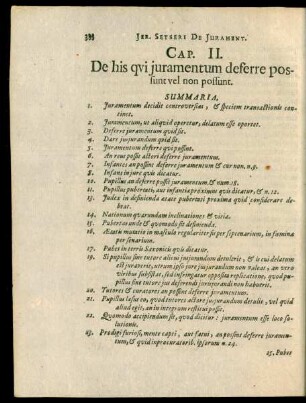 JER. SETSERI DE JURAMENT.
CAP. II.
De his qvi juramentum deferre pos-
sunt vel non possunt.
SUMMARIA.
1. Juramentum decidit controversias, & speciem transactionis con-
tinet.
2. Juramentum, ut aliquid operetur, delatum esse oportet.
3. Deferre juramentum quid sit.
4. Dare jusjurandum quid sit.
5. Juramentum deferre qui possunt.
6. An reus possit actori deferre juramentum.
7. Infantes an possint deferre juramentum & cur non. n. 9.
8. Infans in jure quis dicatur.
10. Pupillus an deferre possit juramentum. & num. 18.
11. Pupillus pubertati, aut infantiæ proximus quis dicatur, & n. 12.
13. Judex in definienda ætate pubertati proxima quid considerare de-
beat.
14. Nationum quarundam inclinationes & vitia.
15. Pubertas unde & quomodo sit definienda.
16. Ætatis mutatio in masculo regulariter fit per septenarium, in fœmina
per senarium.
17. Pubes in terris Saxonicis quis dicatur.
19. Si pupillus sine tutore alicui jusjurandum detulerit, & is cui delatum
est juraverit, utrum ipso jure jusjurandum non valeat, an vero
viribus subsistat, sed infringatur opposita replicatione, quod pu-
pillus sine tutore jus deferendi jurisjurandi non habuerit.
20. Tutores & curatores an possint deferre juramentum.
21. Pupillus læsus eo, quod tutores actore jusjurandum detulit, vel quid
aliud egit, an in integrum restitui possit.
22. Quomodo accipiendum sit, quod dicitur: juramentum esse loco so-
lutionis.
23. Prodigi furiosi, mente capti, aut fatui, an possint deferre jura-
mentum, & quid in
25. Pubes